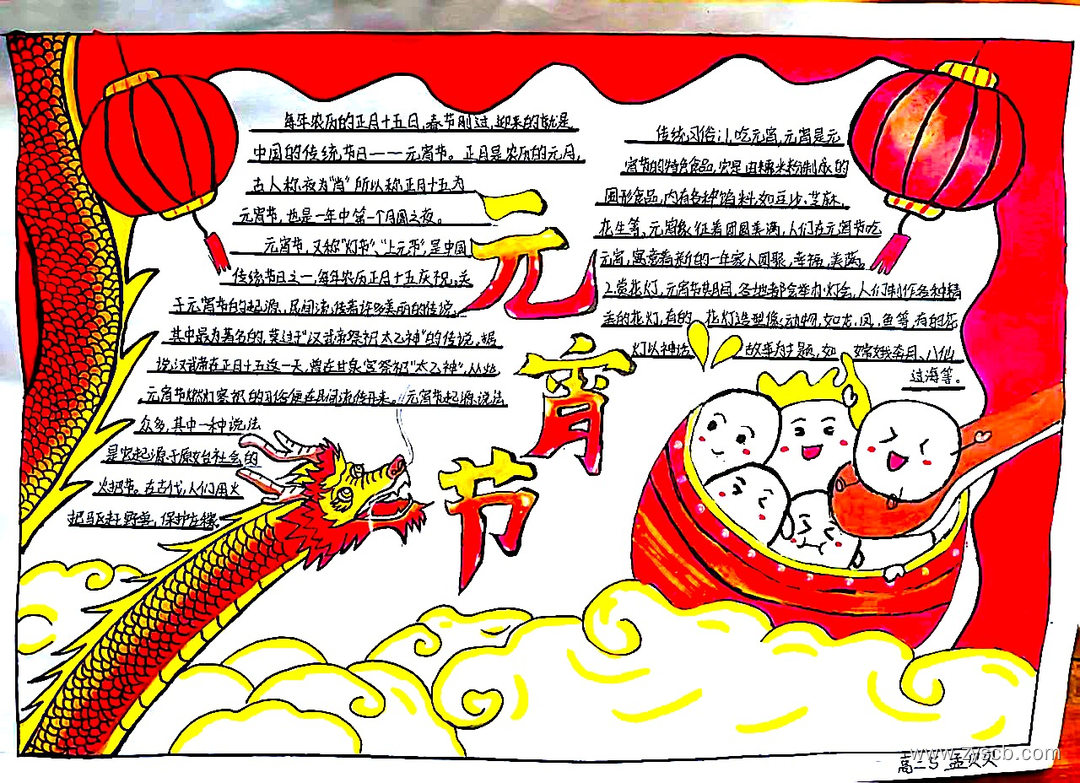 每年农历的正月十五日,春节刚过,迎来的就是
中国的传统节日——元宵节。正月是农历的元月,
古人称夜为"宵"所以称正月十五为
元宵节,也是一年中第一个月圆之夜。
元宵节,又称"灯节"、"上元节",是中国
传统节日之一,每年农历正月十五庆祝。关
于元宵节的起源,民间流传着许多美丽的传说。
其中最为著名的,莫过于"汉武帝祭祀太乙神"的传说,据
说,汉武帝在正月十五这一天,曾在甘泉宫祭祀"太乙神",从此,
元宵节燃灯祭祀的习俗便在民间流传开来。元宵节起源说法
众多,其中一种说法
是它起源于原始社会的
火把节。在古代,人们用火
把驱赶野兽,保护庄稼。
元宵节
传统习俗:1,吃元宵,元宵是元
宵节的特色食品,它是由糯米粉制成的
圆形食品,内有各种馅料,如豆沙,芝麻,
花生等,元宵象征着团圆美满,人们在元宵节吃
元宵,寓意着新的一年家人团聚,幸福,美满。
2.赏花灯,元宵节期间,各地都会举办灯会,人们制作各种精
美的花灯,有的花灯造型像动物,如龙,凤,鱼等,有的花
灯以神话故事为主题,如嫦娥奔月、八仙
过海等。
www.zyscb.com